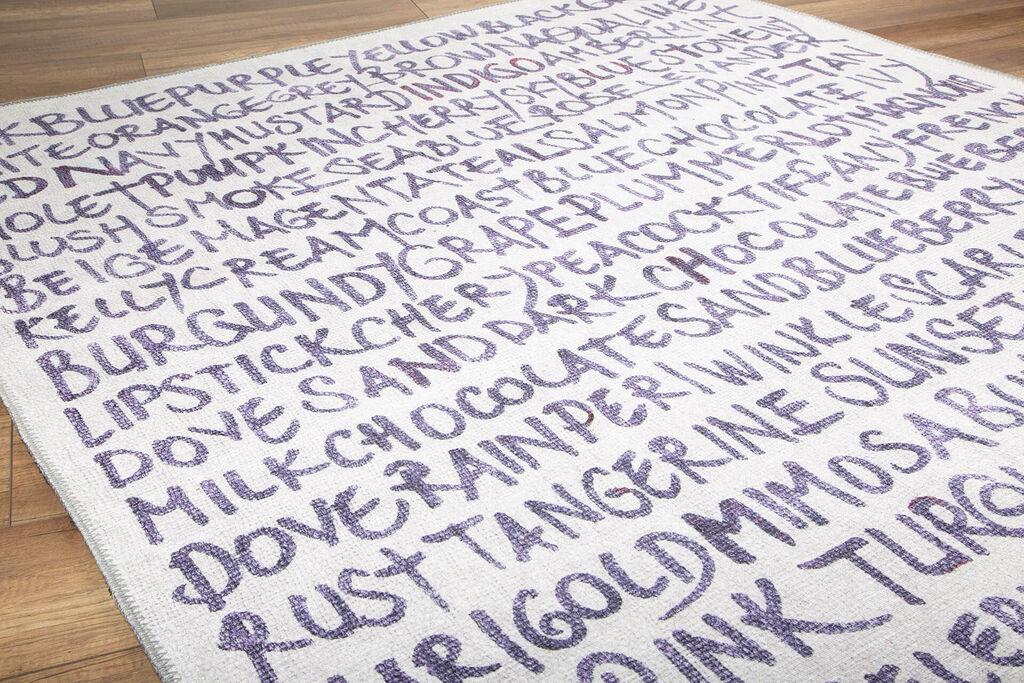 KBLUEPURPLEYELLOWBLACKG
TEORANGEGREYBROWNAQUALIME
D NAVY/MUSTARD INDIGOAMBERMINT
OLETPUMPKINCHERRY/SKYBLUE
BLUSHSMOKE SEABLUE ROSE LAVANDER
BEIGE MAGENTATEALSALMONPINE TAN
KELLYCREAMCOASTBLUECHOCOLATE IVY
BURGUNDYGRAPEPLUMMERLOTMAGNOLIA
LIPSTICKCHERYPEACOCKTIFFANYFRENCH
DOVE SAND DARK CHOCOLATEBLUEBER
MILKCHOCOLATESANDBLUEBERRY
DOVERAINPERIWINKLESCARL
RUST TANGERINE SUNSET
ARIGOLDMIMOSABL
PINK TURQU